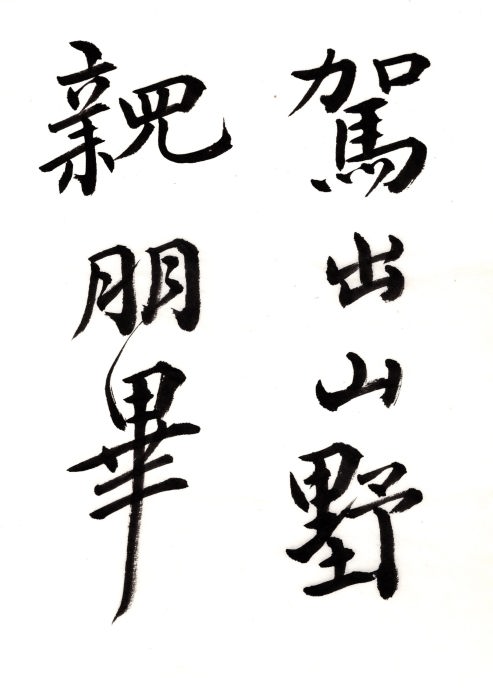 駕出山野
親朋畢